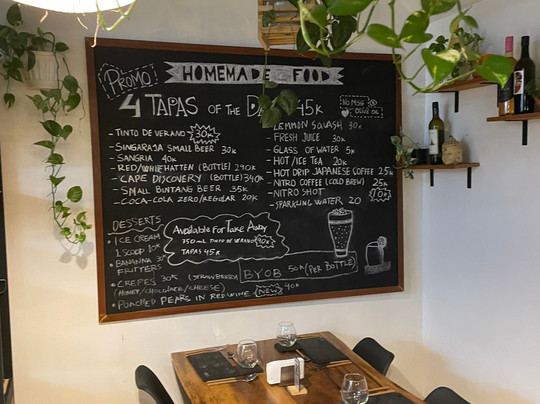 PROMO
HOMEMADE FOOD
4 TAPAS OF THE DAY 45K
NO MSG
OLIVE OIL
- TINTO DE VERANO 30K
- SINGARAJA SMALL BEER 30K
- SANGRIA 40K
- RED/WHITE HATTEN (BOTTLE) 290K
- CAPE DISCOVERY (BOTTLE) 340K
- SMALL BINTANG BEER 35K
- COCA-COLA ZERO/REGULAR 20K
- LEMMON SQUASH 30K
- FRESH JUICE 30K
- GLASS OF WATER 5K
- HOT/ICE TEA 20K
- HOT DRIP JAPANESE COFFEE 25K
- NITRO COFFEE (COLD BREW) 25K
- NITRO SHOT
- SPARKLING WATER 20
DESSERTS
• ICE CREAM
1 SCOOP 10K
• BANANNA
FRITTERS
• CREPES 30K (STRAWBERRY)
(HONEY/CHOCOLATE/CHEESE)
• POACHED PEARS IN RED WINE NEW 40K
Available For Take Away
750 mL TINTO DE VERANO 90K
TAPAS 45K
BYOB 50K (PER BOTTLE)